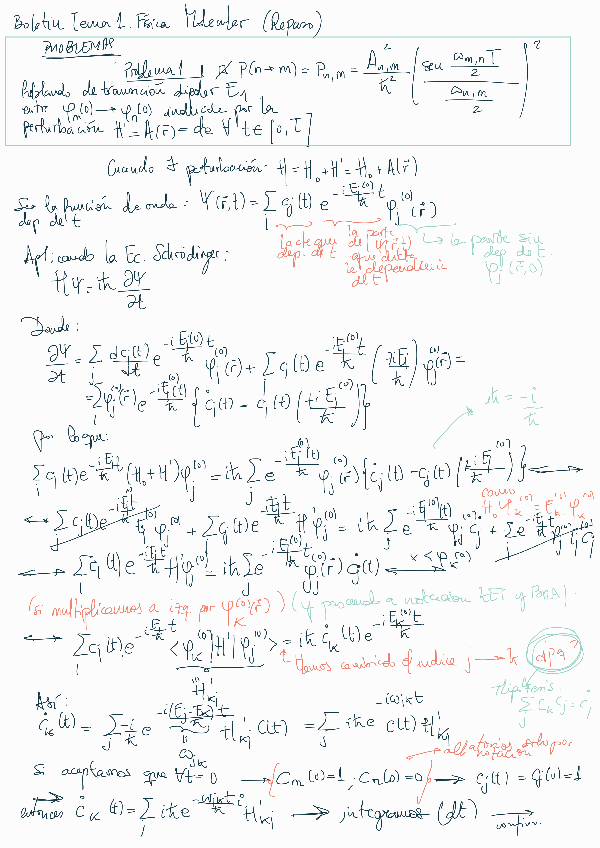 Boletín Tema 1. Física Molecular (Repaso)
PROBLEMAS
Problema 1 P(n→m) = P_{n,m} = \frac{A_{n,m}^2}{ħ^2} \left( \frac{sen \frac{ω_{m,n} T}{2}}{\frac{ω_{n,m}}{2}} \right)^2
Hablando de transición dipolar E_1
entre φ_n^{(0)} → φ_m^{(0)} inducida por la
perturbación H' = A(r⃗) = de ∀ t ∈ [0, T]
Cuando ∃ perturbación: H = H_0 + H' = H_0 + A(r⃗)
Sea la función de onda: Ψ(r⃗,t) = \sum_j c_j(t) e^{-i\frac{E_j^{(0)}}{ħ} t} φ_j^{(0)}(r⃗)
dep de t
la cte que dep. de t
la parte de Ψ(r⃗,t) que dicta la dependencia del t
↳ la parte sin dep de t. φ_j(r⃗,0)
Aplicando la Ec. Schrödinger:
HΨ = iħ \frac{∂Ψ}{∂t}
Donde:
\frac{∂Ψ}{∂t} = \sum_j \frac{dc_j(t)}{dt} e^{-i\frac{E_j^{(0)}}{ħ} t} φ_j^{(0)}(r⃗) + \sum_j c_j(t) e^{-i\frac{E_j^{(0)}}{ħ} t} \left( \frac{-iE_j}{ħ} \right) φ_j^{(0)}(r⃗) =
= \sum_j φ_j^{(0)}(r⃗) e^{-i\frac{E_j^{(0)}(t)}{ħ}} \{ ċ_j(t) - c_j(t) \left( \frac{+iE_j^{(0)}}{ħ} \right) \}
iħ = \frac{-i}{ħ}
por lo que:
\sum_j c_j(t) e^{-i\frac{E_j t}{ħ}} (H_0 + H') φ_j^{(0)} = iħ \sum_j e^{-i\frac{E_j^{(0)}(t)}{ħ}} φ_j^{(0)}(r⃗) \{ ċ_j(t) - c_j(t) \left( \frac{iE_j^{(0)}}{ħ} \right) \} ↔
como
H_0 φ_k^{(0)} = E_k^{(0)} φ_k^{(0)}
↔ \sum_j c_j(t) e^{-i\frac{E_j^{(0)} t}{ħ}} E_j φ_j^{(0)} + \sum_j c_j(t) e^{-i\frac{E_j t}{ħ}} H' φ_j^{(0)} = iħ \sum_j e^{-i\frac{E_j^{(0)}(t)}{ħ}} φ_j^{(0)} ċ_j + \sum_j e^{-i\frac{E_j t}{ħ}} φ_j^{(0)} E_j c_j
↔ \sum_j c_j(t) e^{-i\frac{E_j t}{ħ}} H' φ_j^{(0)} = iħ \sum_j e^{-i\frac{E_j^{(0)} t}{ħ}} φ_j^{(0)}(r⃗) ċ_j(t) ↔ × <φ_k^{(0)}
(si multiplicamos a izq por φ_k^{(0)}(r⃗)) (y pasando a notación KET y BRA).
↔ \sum_j c_j(t) e^{-i\frac{E_j}{ħ} t} <φ_k^{(0)}|H'|φ_j^{(0)}> = iħ ċ_k(t) e^{-i\frac{E_k^{(0)} t}{ħ}}
Hemos cambiado el índice j → k
¿por q?
H'_{kj}
Hipótesis: \sum_j c_k c_j = c_j
Así:
ċ_k(t) = \sum_j \frac{-i}{ħ} e^{-i\frac{(E_j - E_k)}{ħ} t} H'_{kj} c(t) = \sum_j iħ e^{-iω_{jk} t} c(t) H'_{kj}
ω_{jk}
aleatorios solo por notación
si aceptamos que ∀t = 0 → \{ C_m(0) = 1, C_n(0) = 0 \} → c_j(t) = c_j(0) = 1
entonces ċ_k(t) = \sum_j iħ e^{-\frac{ω_{jk} t}{ħ} i} H'_{kj} → integramos (dt) →